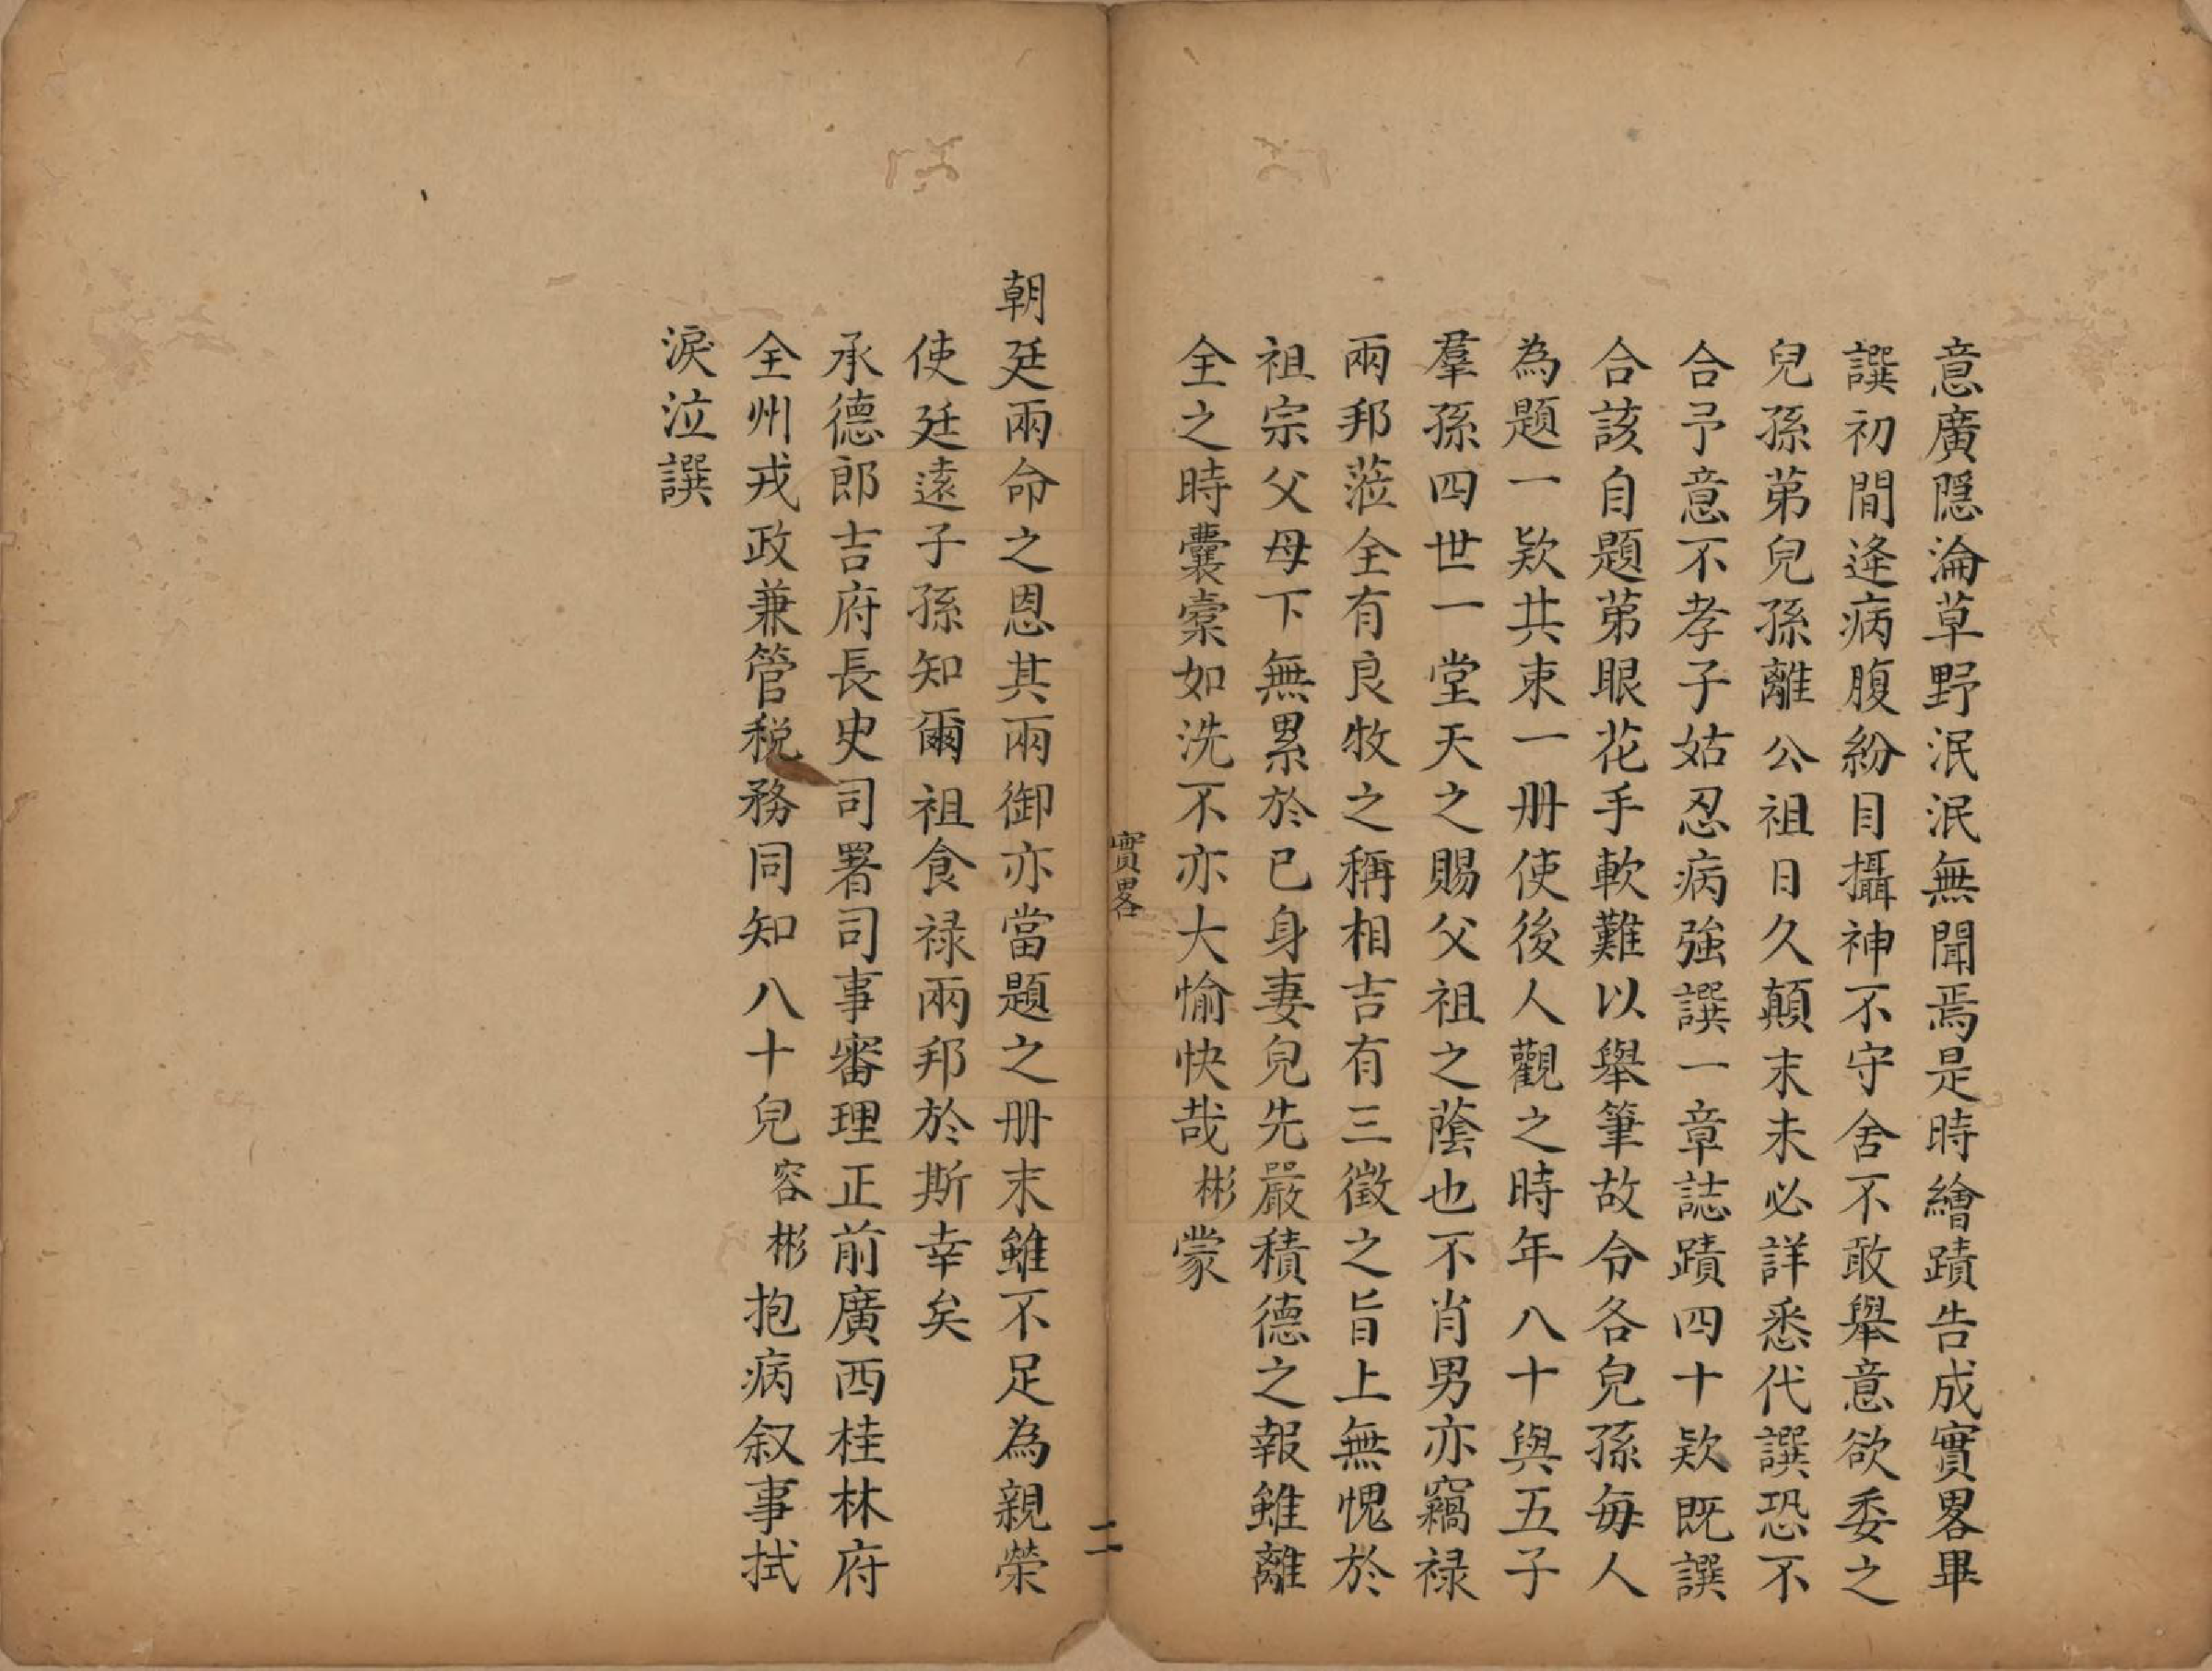 意廣隱淪草野泯泯無聞焉是時繪蹟告成實畧畢
譔初間逄病腹紛目攝神不守舍不敢舉意欲委之
兒孫苐兒孫離公祖日久顛末未必詳悉代譔恐不
合予意不孝子姑忍病強譔一章誌蹟四十欵既譔
合該自題苐眼花手軟難以舉筆故令各兒孫每人
為題一欵共束一册使後人觀之時年八十與五子
羣孫四世一堂天之賜父祖之蔭也不肖男亦竊禄
兩邦蒞全有良牧之稱相吉有三徵之旨上無愧於
祖宗父母下無累於已身妻兒先嚴積德之報雖離
全之時囊槖如洗不亦大愉快哉彬蒙
實畧
二
朝廷兩命之恩其兩御亦當題之册末雖不足為親榮
使廷遠子孫知爾祖食禄兩邦於斯幸矣
承德郎吉府長史司署司事審理正前廣西桂林府
全州戎政兼管税務同知八十兒容彬抱病叙事拭
淚泣譔